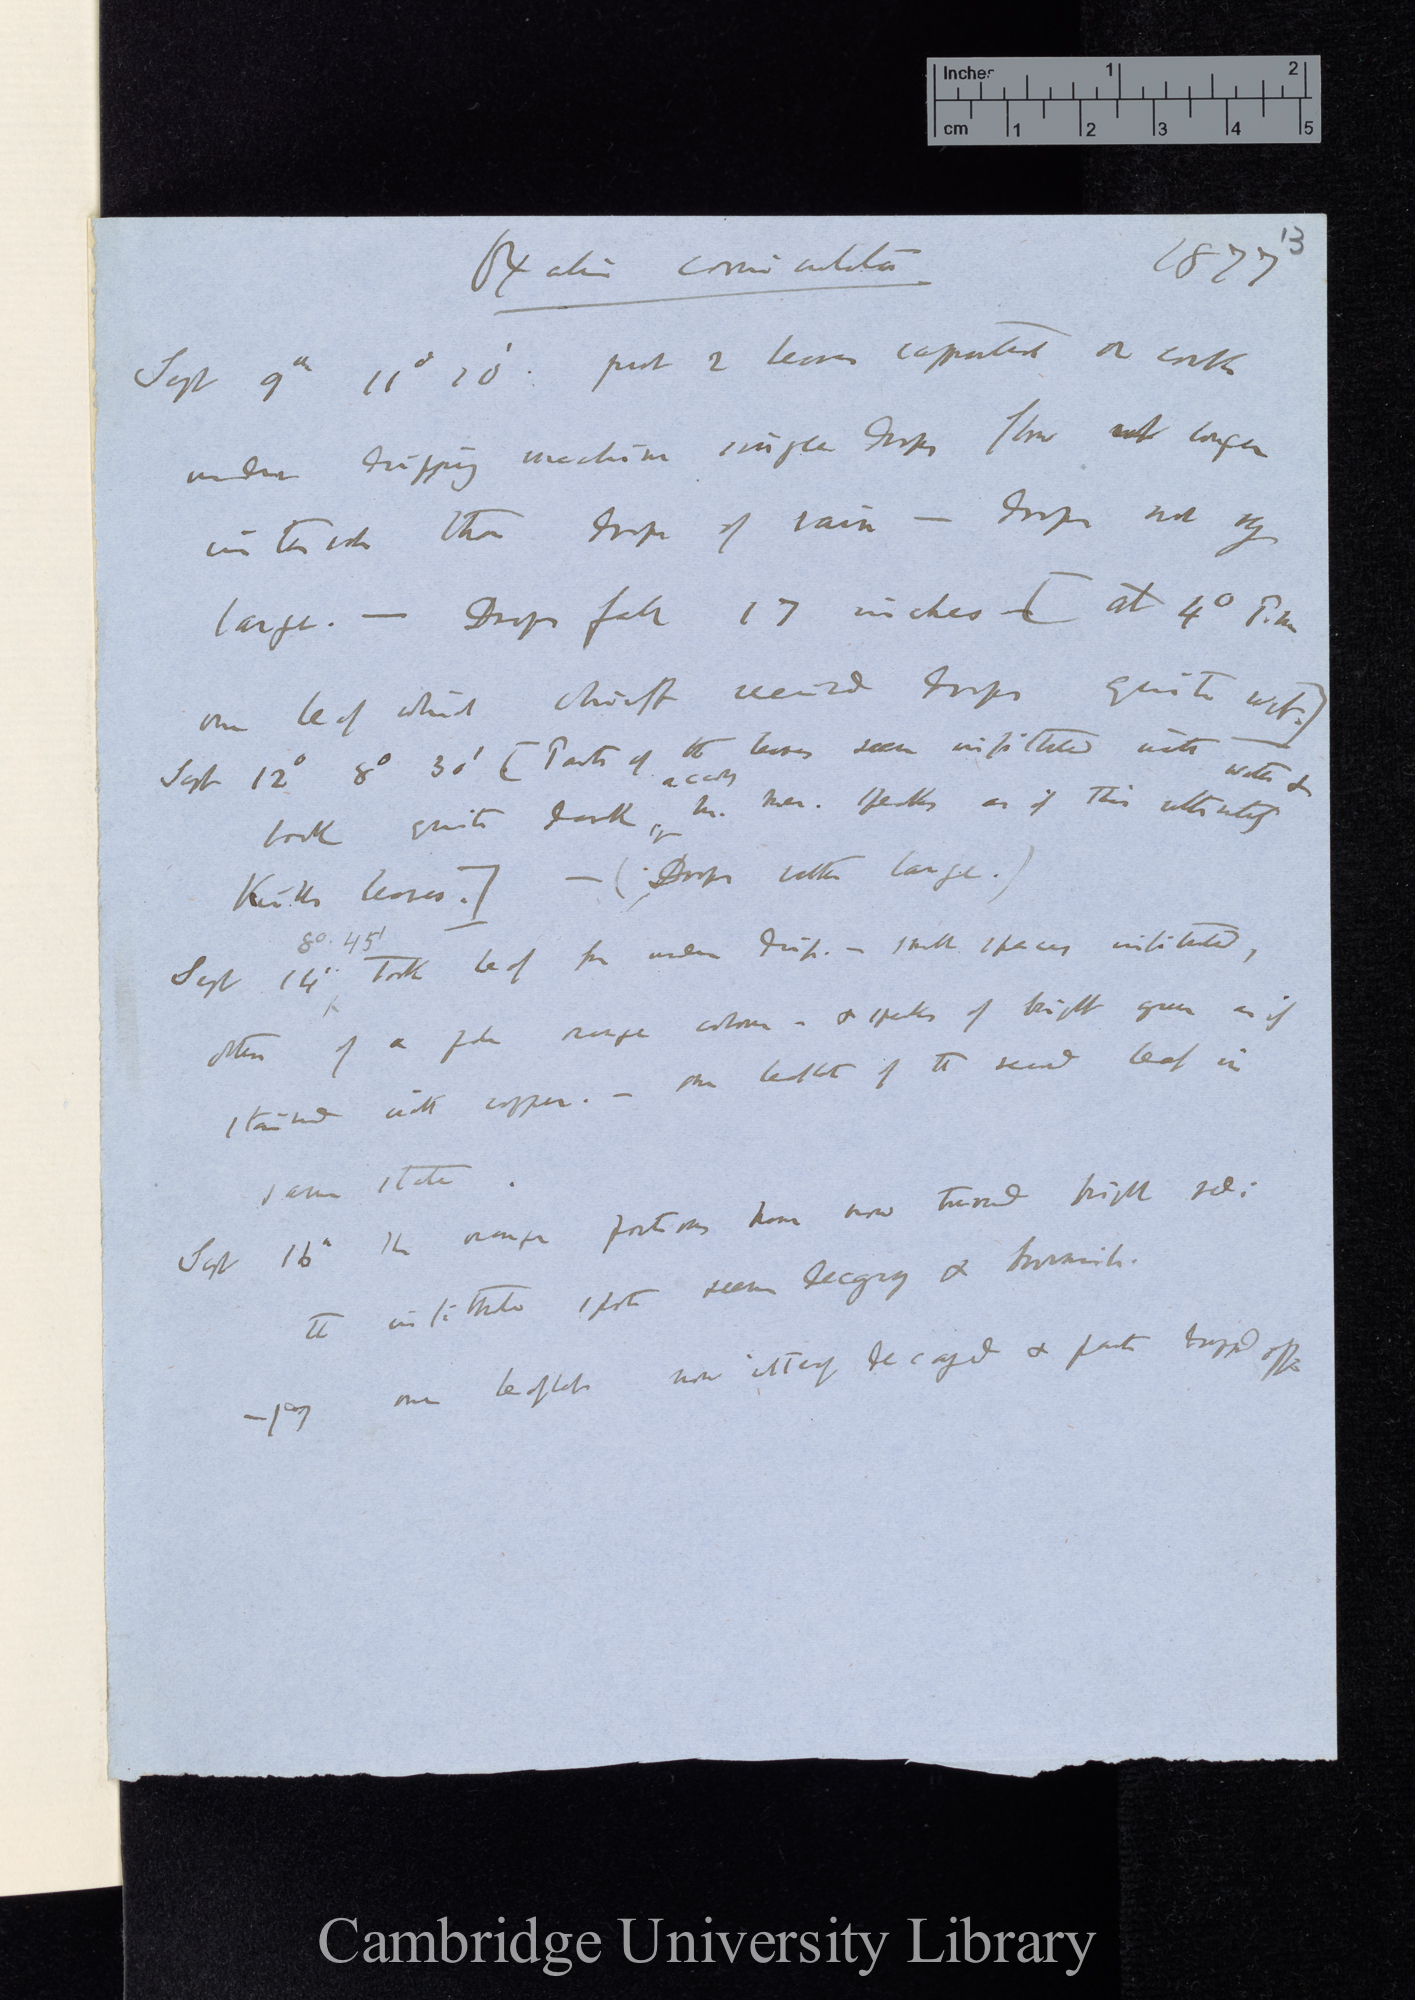 Inches 1 2
cm 1 2 3 4 5
13
Oxalis corniculata 1877
Sept 9th 11° 20'. put 2 leaves supported on cork
under dripping machine single drops flow not longer
intervals than drops of rain — drops not very
large. — Drops fall 17 inches — [at 4° P.m
one leaf which chiefly received drops quite wet.]
Sept 12° 8° 30' [Parts of the leaves seem infiltrated with water &
look quite dark, specks as if this ultimately
leaves.] — (Drops rather large.)
8°. 45'
Sept 14th Took leaf from under drip. — small spaces infiltrated,
others of a pale orange colour — & specks of bright green as if
stained with copper. — one leaflet of the second leaf in
same state.
Sept 16th The orange portions have now turned bright red;
the infiltrated spots seem decaying & brownish.
one leaflet now utterly decayed & parts dropped off
Cambridge University Library